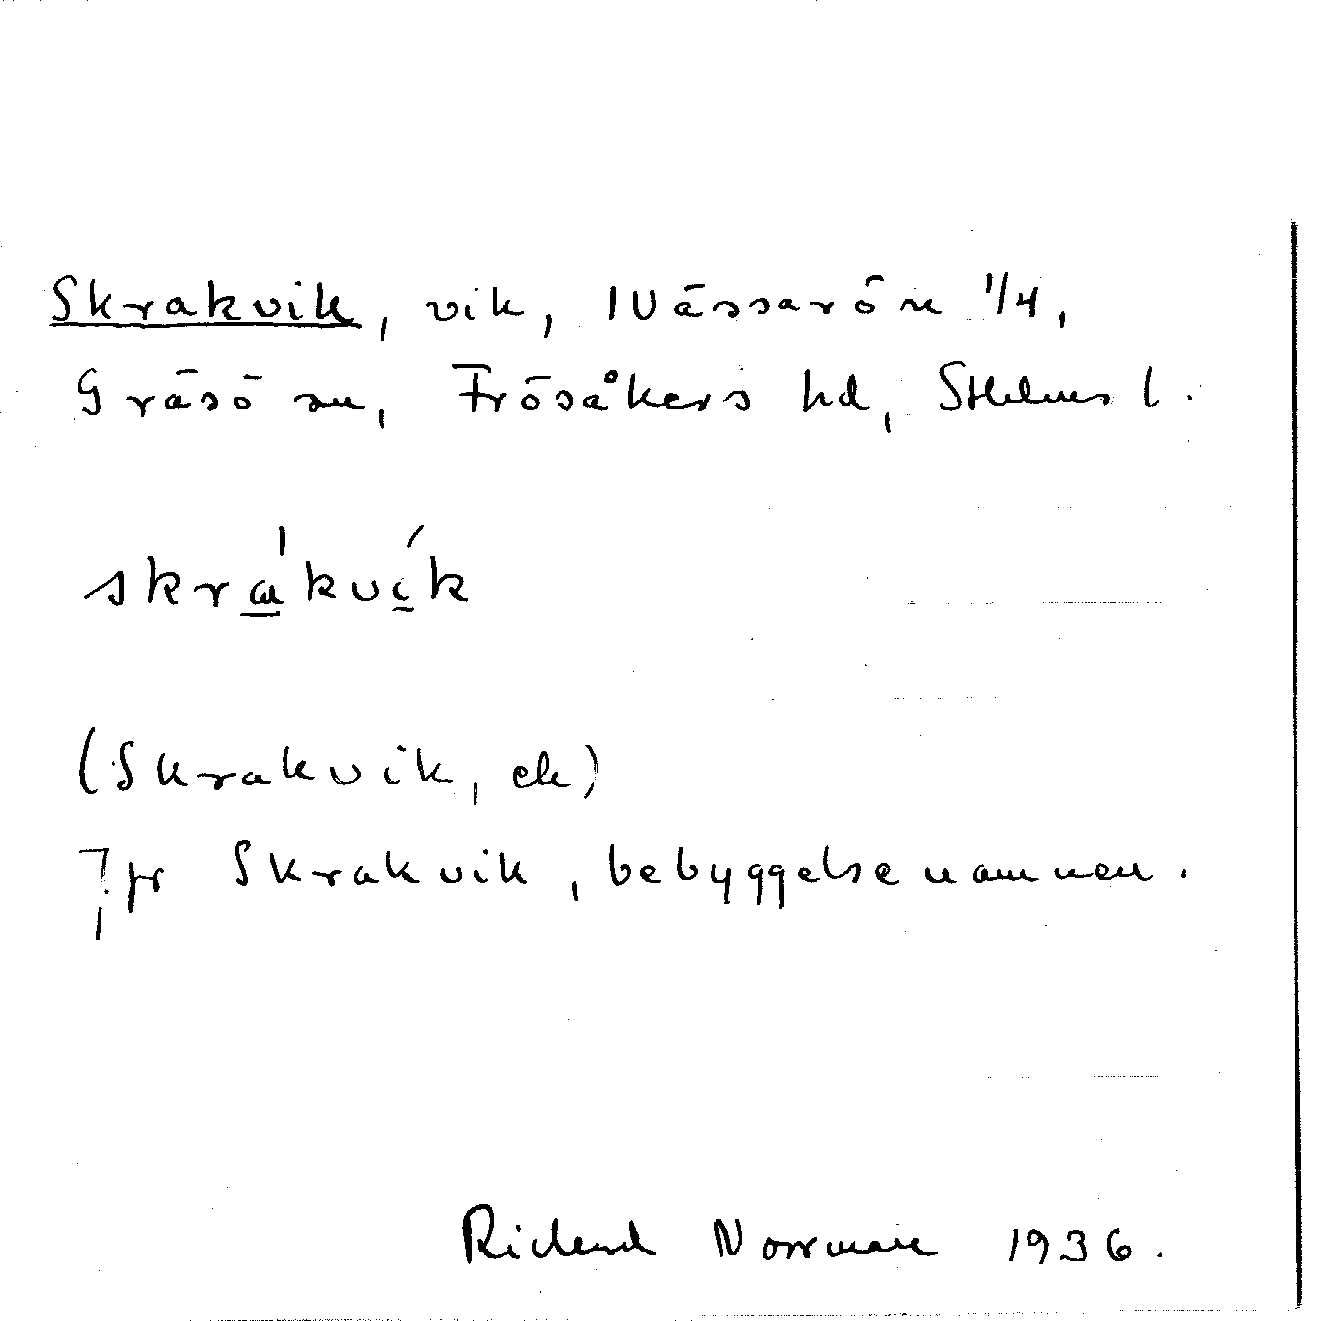 Skrakvik, vik, Wässarön 1/4,
Gräsö sn, Frösåkers hd, Sthlms l.
skrákvík
(Skrakvik, ek)
Jfr Skrakvik, bebyggelsenamnen.
Rickard Norrman 1936.